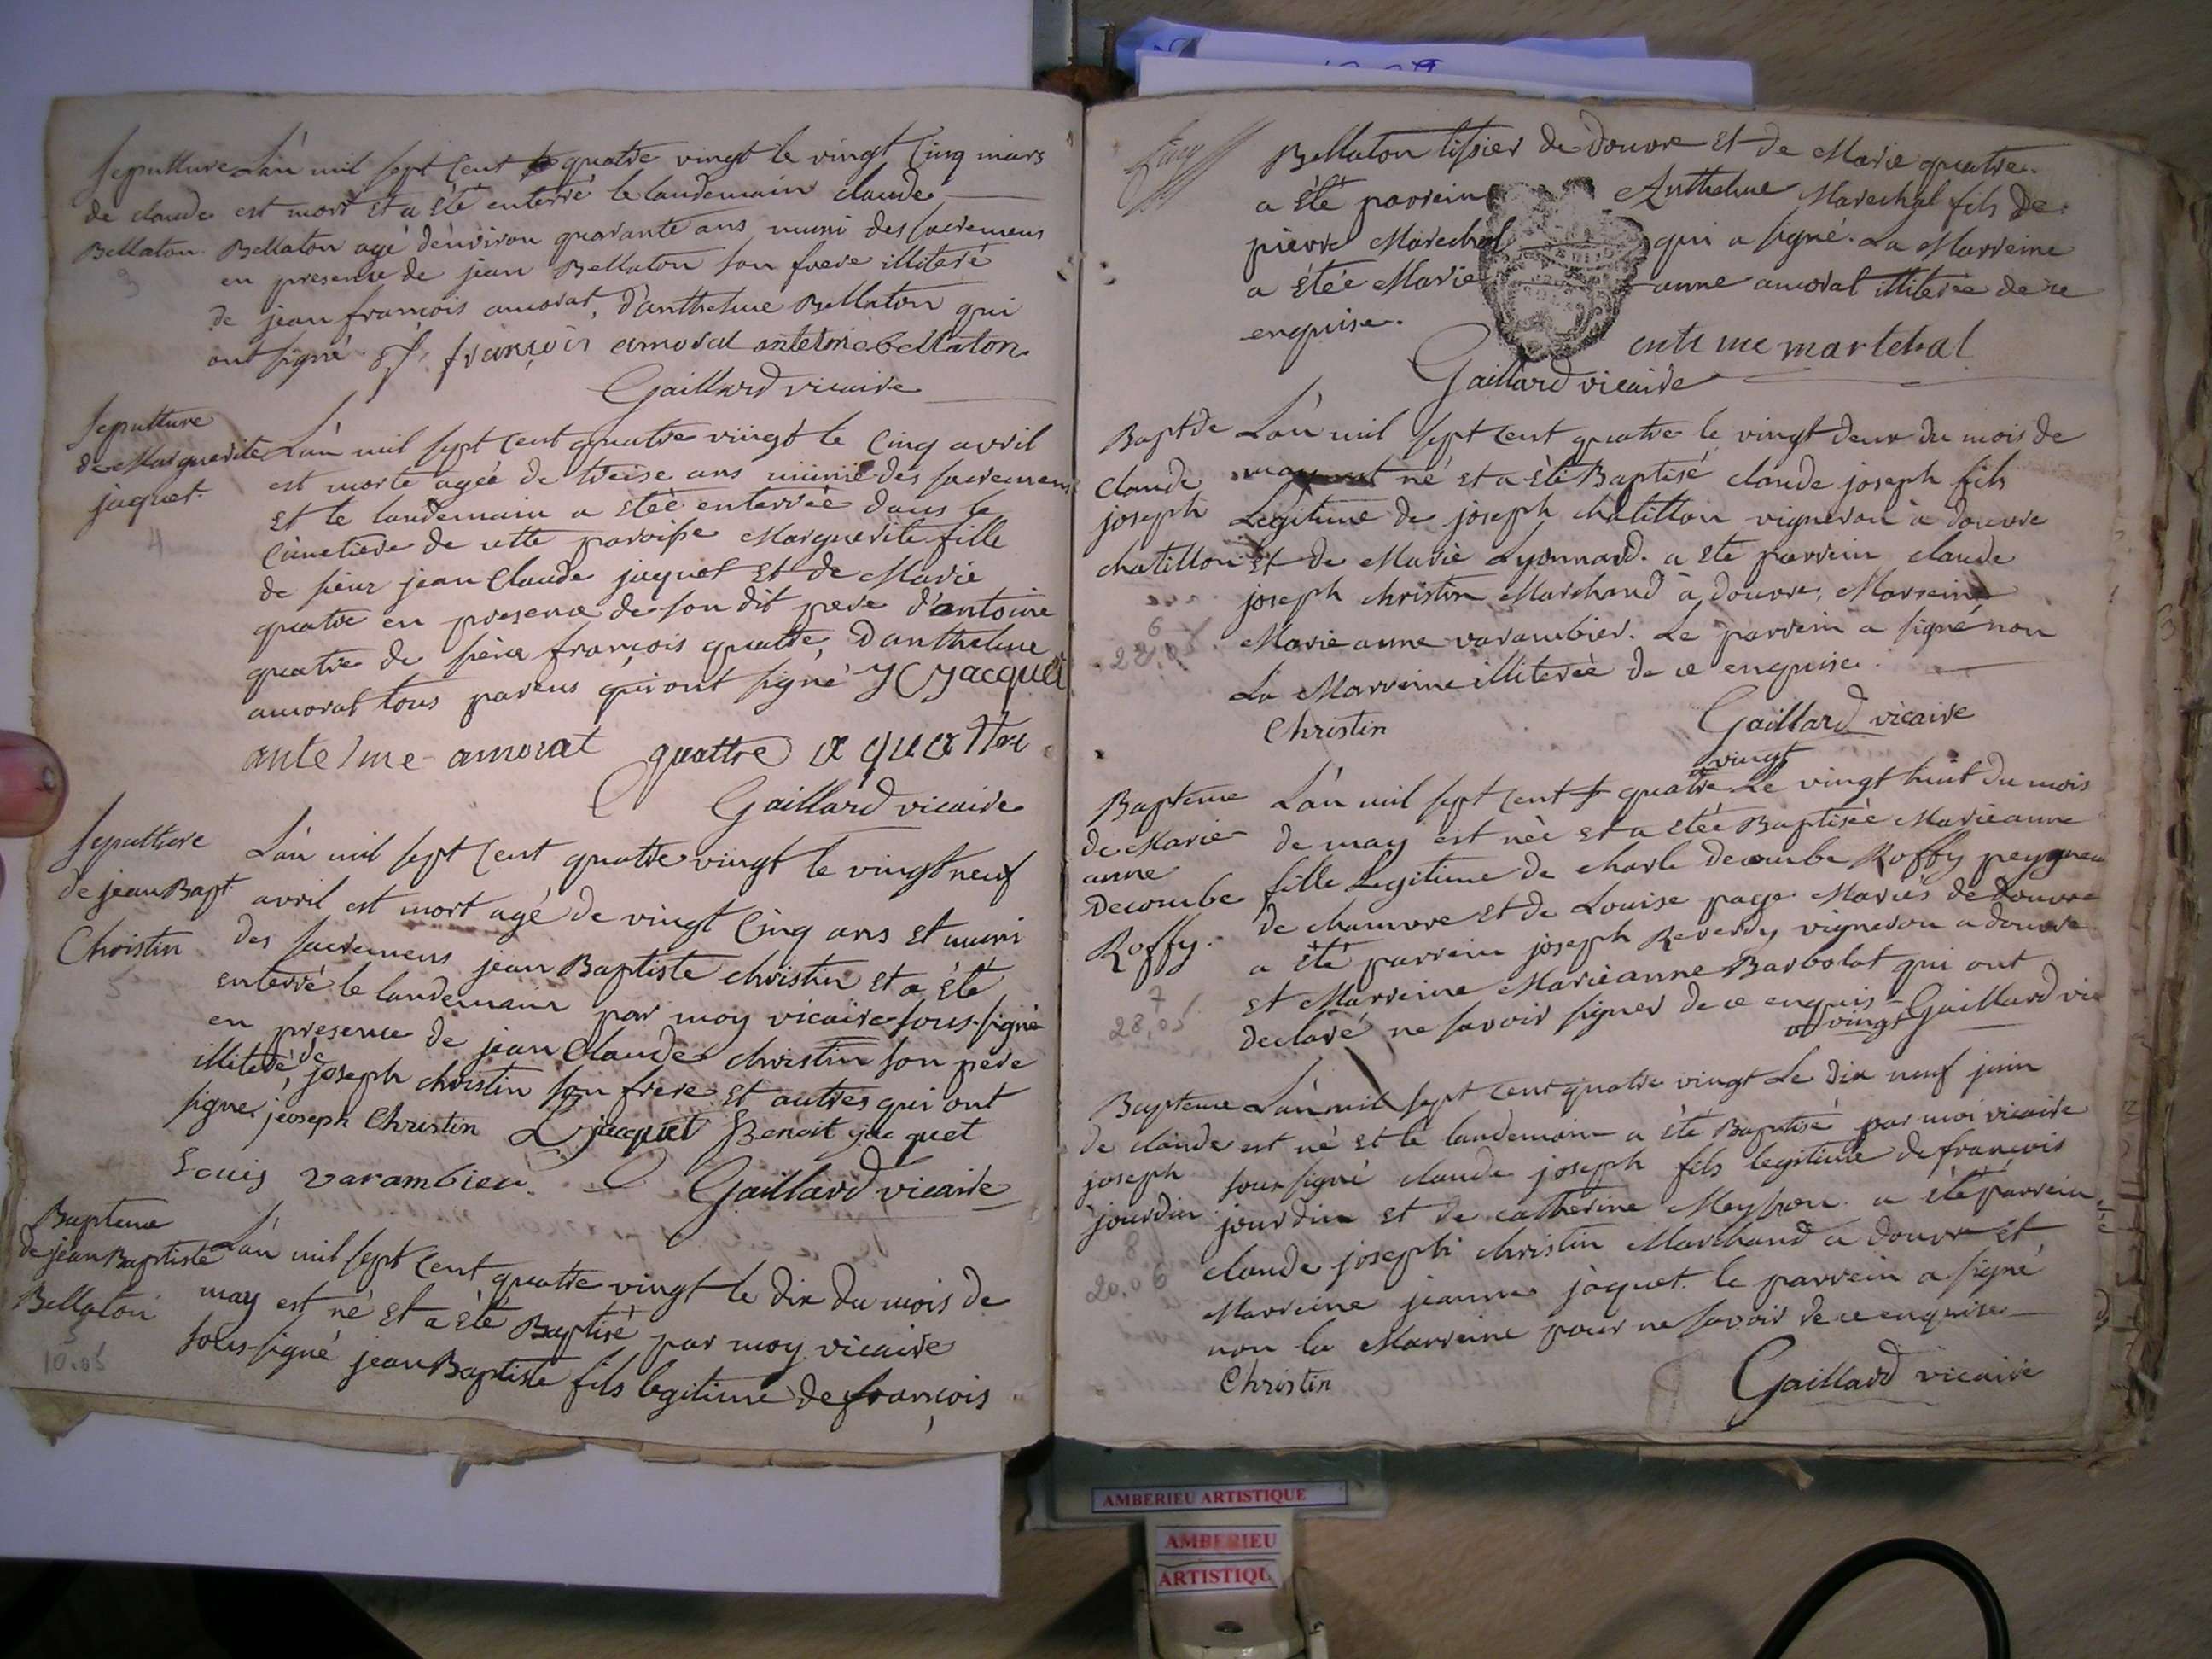 Sepulture L'an mil sept cent quatre vingt le vingt cinq mars
de claude est mort et a été enterré le landemain claude
Bellaton Bellaton agé d'environ quarante ans muni des sacremens
3 en presence de jean Bellaton son frere illiteré
de jean françois amorat, d'anthelme Bellaton qui
ont signé J. françois amorat antelme bellaton
Gaillard vicaire
Sepulture
de Marguerite L'an mil sept cent quatre vingt le cinq avril
jaquet est morte agée de treise ans munie des sacremens
et le landemain a étéé enterrée dans le
4 cimetiere de cette paroisse Marguerite fille
de sieur jean Claude jaquet et de Marie
quatre en presence de son dit pere d'antoine
quatre de sieur françois quatre, d'anthelme
amorat tous parens qui ont signé J C Jacquet
antelme amorat quattre a quattre
Gaillard vicaire
Sepulture L'an mil sept cent quatre vingt le vingt neuf
de jean Bapt. avril est mort agé de vingt cinq ans et muni
Christin des sacremens jean Baptiste christin et a été
5 enterré le landemain par moy vicaire sous-signé
en presence de jean Claude christin son pere
illiteré, de joseph christin son frere et autres qui ont
signe joseph Christin L jacquet Benoit jacquet
Louis varambier Gaillard vicaire
Bapteme L'an mil sept cent quatre vingt le dix du mois de
de jean Baptiste may est né et a été Baptisé par moy vicaire
Bellaton sous-signé jean Baptiste fils legitime de françois
5
10.05
Bellaton tissier de Douvre et de Marie quatre.
a été parrein Anthelme Marechal fils de
pierre Marechal qui a signé. La Marreine
a étée Marie anne amorat illiterée de ce
enquise.
Gaillard vicaire
Bapt de L'an mil sept cent quatre le vingt deux du mois de
claude may est né et a été Baptisé claude joseph fils
joseph Legitime de joseph chatillon vigneron a douvre
chatillon et de Marie Lyonnard. a ete parrein claude
joseph christin Marchand à douvre, Marreine
6 Marie anne varambier. Le parrein a signé non
22.05 La Marreine illiterée de ce enquise.
Christin Gaillard vicaire
vingt
Bapteme L'an mil sept cent quatre Le vingt huit du mois
de Marie de may est née et a étéé Baptisée Marie anne
anne fille Legitime de charle decombe Roffy peygneur
Decombe de chanvre et de Louise page Mariés de Douvre
Roffy. a été parrein joseph Reverdy vigneron a douvre
7 et Marreine Marie anne Barbolat qui ont
28.05 declaré ne savoir signer de ce enquis Gaillard vic
Bapteme L'an mil sept cent quatre vingt Le dix neuf juin
de claude est né et le landemain a été Baptisé par moi vicaire
joseph sous signé claude joseph fils legitime de françois
jourdin jourdin et de catherine Meysson. a été parrein
8 claude joseph christin Marchand a douvre et
20.06 Marreine jeanne jaquet. le parrein a signé
non la Marreine pour ne savoir de ce enquise
Christin Gaillard vicaire
AMBERIEU ARTISTIQUE
AMBERIEU
ARTISTIQU